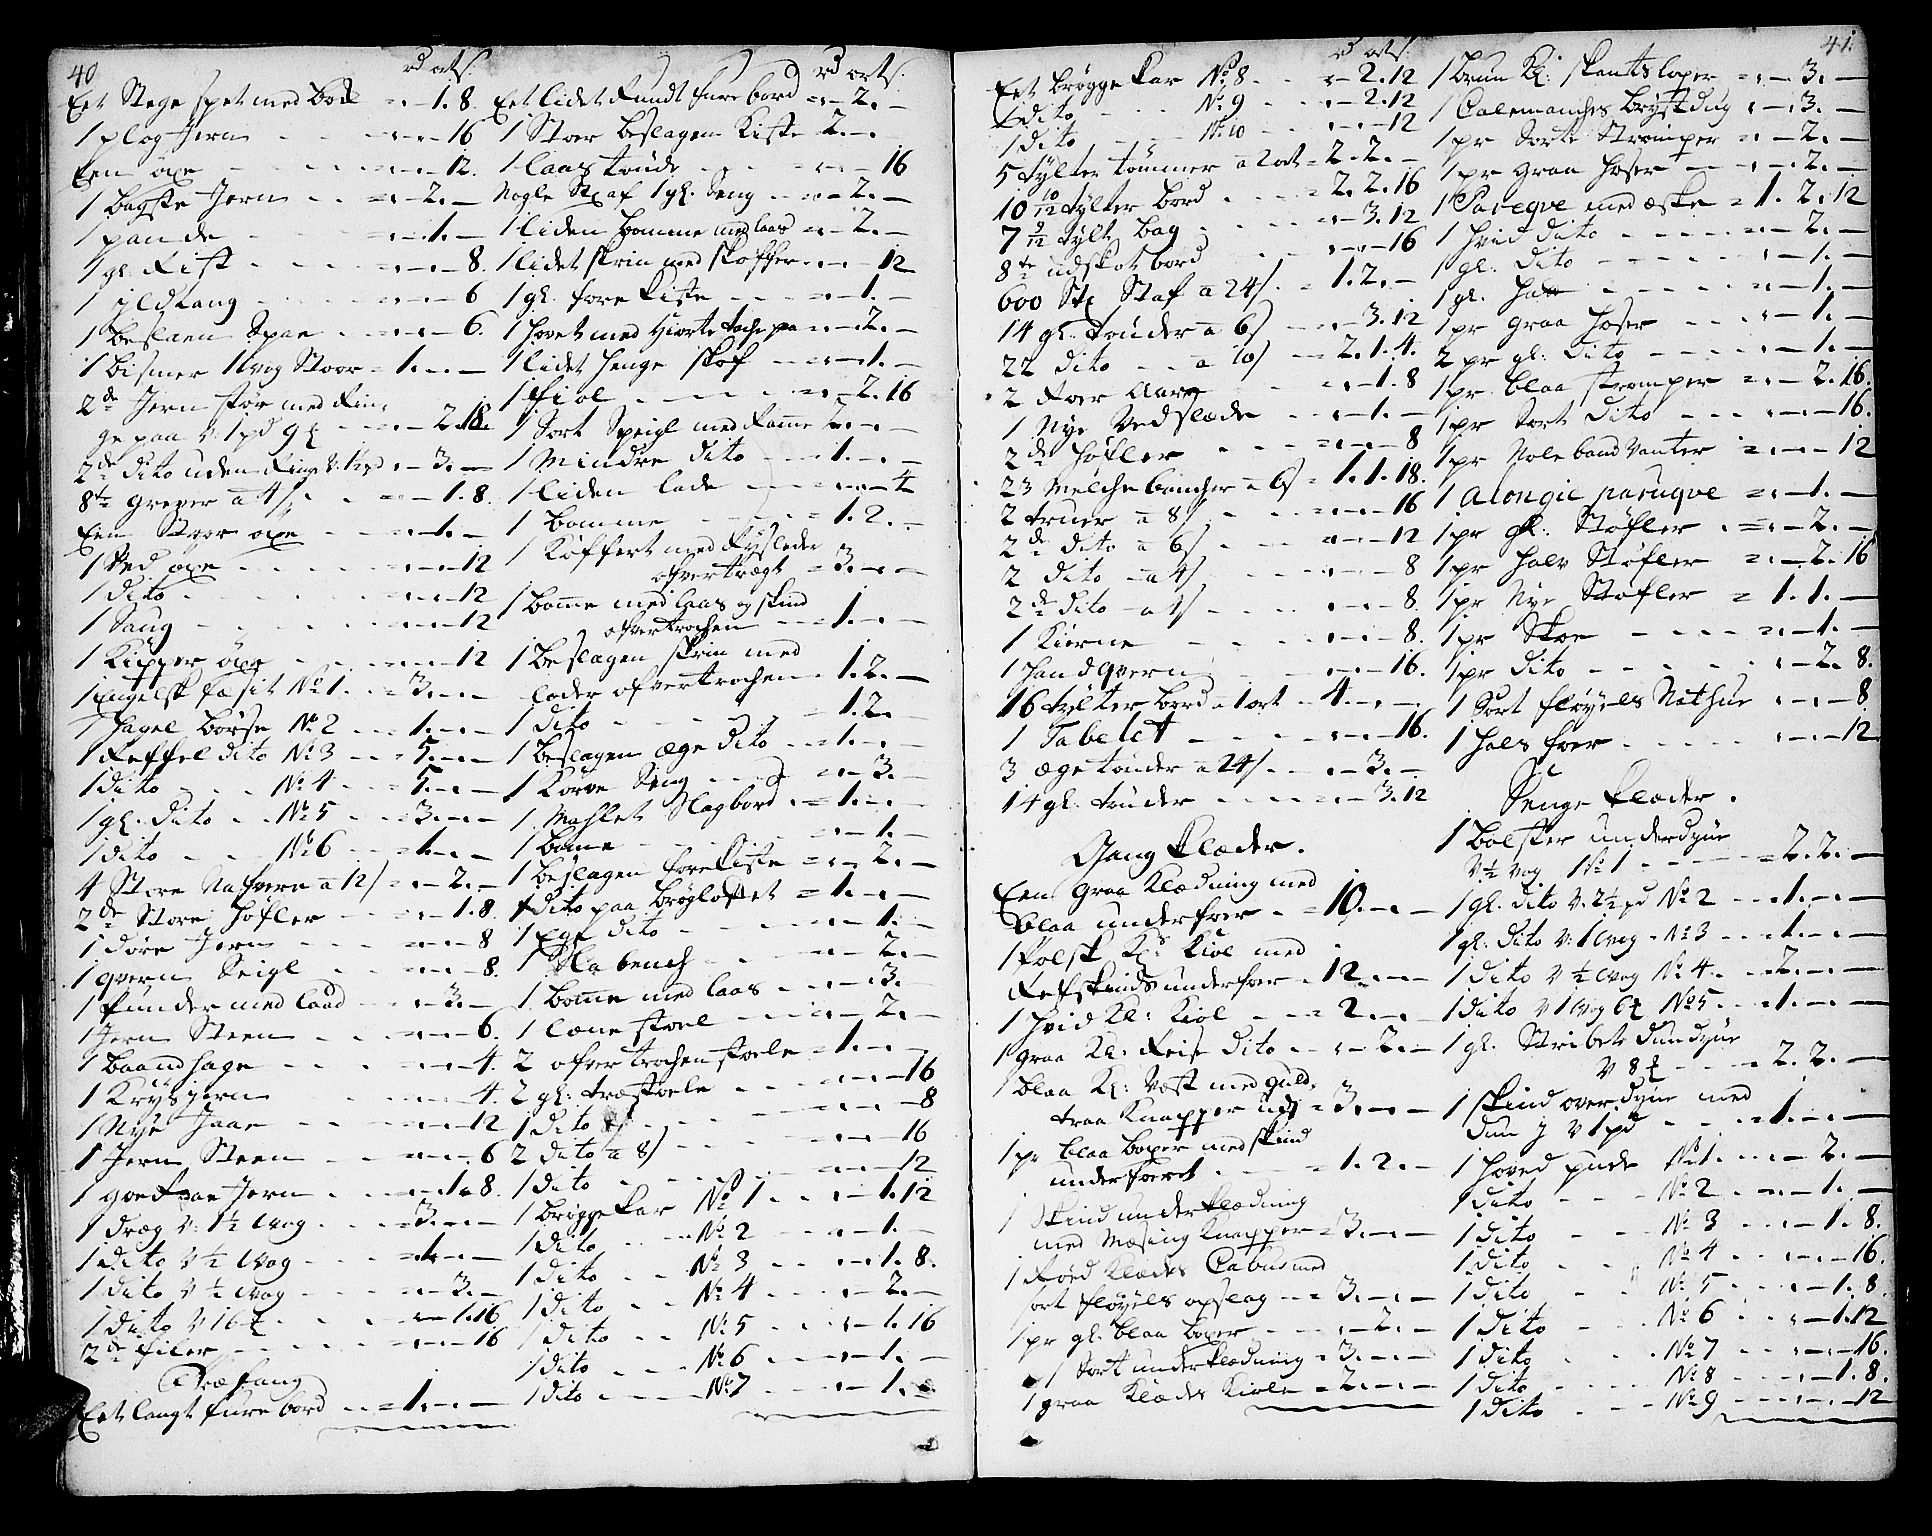 40
rd ort s.
Eet Stege spet med Bock =.-1.8.
1 plog Jern - - =.-.-16
Een øxe - - - =.-.-12.
1 bagste Jern - - =.-2.-
1 pande - - - =.-1.-
1 gl. Rist - - - =.-.-8.
1 ildtang - - - =.-.-6
1 beslaaen Spae - - =.-.-6.
1 bismer 1 wog Stoor = 1.-.-
2de Jern stør med Rin,
ge paa v: 1 pd 9 - =.-2.18.
2de dito uden Ringe =.-3.-
8te greper a 4/ - =.-1.8.
Een Stoor øxe - - =.-1.-
1 Ved øxe - - - =.-.-12
1 dito - - - =.-.-12
1 Saug - - - =.-.-12
1 Kipper øxe - - =.-.-12
1 Engelsk No 1. - 3.-.-
1 hagel børse No 2 - 1.-.-
1 Reffel dito No 3 - 5.-.-
1 dito - - No 4 - 5.-.-
1 gl. dito - No 5 - 3.-.-
1 dito - - No 6 - 1.-.-
4 Store Nafvere a 12/ =.-2.-
2de Store høfler - - .-1.8.
1 døre Jern - - =.-.-8
1 qvern Seigl - - =.-.-8.
1 punder med laad - .-3.-
1 Jern Steen - - =.-.-6.
1 baandhage - - =.-.-4.
1 Krysjern - - =.-.-4.
1 Nye Jaar - - =.-.-12
1 Jern Steen - - =.-.-6
1 Jern - - .-1.8
1 dræg v: 1½ wog - - =3.-.-
1 dito v ½ wog - - =1.-.-
1 dito v ½ wog - - .-3.-
1 dito v 16 - - .-1.16
2de filer - - - .-.-16
Træfang
Eet langt furebord - =1.-.-
rd ort s.
Eet lidet Rundt furebord =.-2.-
1 Stoer beslagen Kiste - 2.-.
1 laas tønde - - - .-.-16
Nogle Stx af 1 gl. Seng - .-2.-
1 liden bomme med laas =.-2.-
1 lidet skrin med skoffer .-.-12
1 gl. fore Kiste - - =.-1.-
1 hovet med Hiorte tache paa =.-2.-
1 lidet henge skof - - .-1.-
1 fiol - - - - .-2.16
1 Sort Speigl med Ramme 2.-.-
1 Mindre dito - - .-1.-
1 liden lade - - - .-.-4
1 bomme - - - =1.2.-
1 Køffert med Rysleder
ofvertrægt =3.-.-
1 bomme med laas og skind
ofvertrochen - - 1.-.-
1 beslagen skrin med
lader ofvertrochen - 1.2.-
1 dito - - - =1.2.
1 beslagen æge dito - =1.-.-
1 Korve Seng - - .-3.-
1 Mahlet Slagbord - =1.-.-
1 bome - - - .-1.-
1 beslagen fore Kiste =.-2.-
1 dito paa brøgloftet =1.-.-
1 Ege dito - - - .-1.-
1 Slabench - - .-2.-
1 bomme med laas - - .-3.-
1 læne stoel - - .-2.-
2 ofvertrochen stoele =1.-.-
2 gl: træstoele - - .-.-16
1 dito - - .-.-8
2 dito a 8/ - - .-.-16
1 dito - - - .-.-12
1 brøgge Kar No 1 - .-1.12
1 dito - - No 2 - .-1.-
1 dito - - No 3 - .-1.8.
1 dito - - No 4 - .-2.-
1 dito - - No 5 - .-1.16
1 dito - - No 6 - .-1.-
1 dito - - No 7 - .-1.-
41.
rd ort s.
Eet brøgge Kar No 8 - - .-2.12
1 dito - - No 9 - - .-2.12
1 dito - - No 10 - - .-.-12
5 tylter tømmer a 2 ort = 2.2.-
10 10/12 tylter bord - - = 2.2.16
7 9/12 tylt bag - - .-3.12
8te udskot bord - - .-.-16
600 Stx Staf a 24/ - 1.2.-
14 gl. tønder a 6/ - .-3.12
22 dito - - a 10/ - =2.1.4.
2 Roer Aare - - .-1.8
1 Nye Vedslæde - - .-1.-
2de høfler - - =.-.-8
23 Melche bøncher a 6/ = 1.1.18.
2 truer a 8/ - - =.-.-16
2de dito a 6/ - - .-.-12
2 dito - a 4/ - - .-.-8
2de dito - a 4/ - - .-.-8.
1 Kierne - - - .-.-8.
1 handqvern - - - .-.-16.
16 tylter bord a 1 ort - 4.-.-
1 Tabelet - - - .-.-16.
3 æge tønder a 24/ - - .-3.-
14 gl. tønder - - - .-3.12
Gang Klæder.
Een Graa Klædning med
blaa underfoer - =10.-.-
1 Polsk Kl. Kiol med
Refskinds underfoer = 12.-.-
1 hvid Kl: Kiol - - = 2.-.-
1 graa Kl: Reise dito - .-2.-
1 blaa Kl: Vest med guld,
traa Knapper udj =3.-.-
1 pr blaa boxer med skind
underfoeret - - =1.2.-
1 Skind underklædning
med Mæsing Knapper =3.-.-
1 Røed Klædes Cabus med
sort fløyels opslag - =3.-.-
1 pr gl. blaa boxer - .-2.-
1 Sort underklædning =3.-.-
1 graa Klædes Kiole =2.-.-
1 brun Kl: skantsloper =.-3.-
1 Calemanches brystdug .-3.-
1 pr Sorte Strømper =.-2.-
1 pr graa hoser - - .-2.-
1 Pareqve med æske = 1.2.12
1 hvid dito - - - =.-2.-
1 gl. dito - - - .-1.-
1 gl. hatt - - - =.-1.-
1 pr graa hoser - - .-1.-
2 pr gl. dito - - - .-1.-
1 pr blaa strømper =.-2.16.
1 pr Sort dito - - .-.-16.
1 pr Nole band Vanter =.-.-12
1 Alongie paruqve =.-1.-
1 pr gl: Støfler - =.-2.-
1 pr halv Støfler =.-2.16
1 pr Nye Støfler = 1.1.-
1 pr Skoe - - - =.-1.-
1 pr dito - - - .-2.8.
1 Sort fløyels Nathue .-.-8
1 hals foer - - - .-.-12
Senge Klæder.
1 bolster underdyne
v ½ vog No 1 - - =2.2.-
1 gl. dito v. 2½ pd No 2 - 1.-.-
1 gl. dito v: 1 wog - No 3 - 1.-.-
1 dito v ½ wog No 4 - 2.-.-
1 dito v 1 wog 6 No 5 - 1.-.-
1 gl. Stribet dundyne
v 8 - - - =2.2.-
1 skind overdyne med
dun J v 1 pd - - =1.-.-
1 hoved pude No 1. - .-2.-
1 dito - - No 2 - =.-1.-
1 dito - - No 3 - .-1.8.
1 dito - - No 4 - .-.-16.
1 dito - - No 5 - .-1.8
1 dito - - No 6 - .-1.12
1 dito - - No 7 - .-.-16.
1 dito - - No 8 - .-1.8.
1 dito - - No 9 - .-.-12